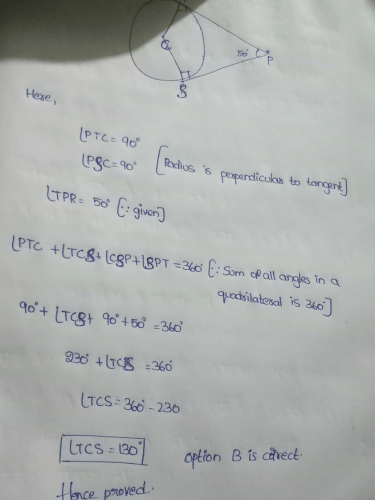 C
50°
P
S
Here,
∠PTC = 90°
∠PSC = 90° [Radius is perpendicular to tangent]
∠TPR = 50° [∵ given]
∠PTC + ∠TCS + ∠CSP + ∠SPT = 360° [∵ Sum of all angles in a
quadrilateral is 360°]
90° + ∠TCS + 90° + 50° = 360°
230° + ∠TCS = 360°
∠TCS = 360° - 230
∠TCS = 130° option B is correct.
Hence proved.